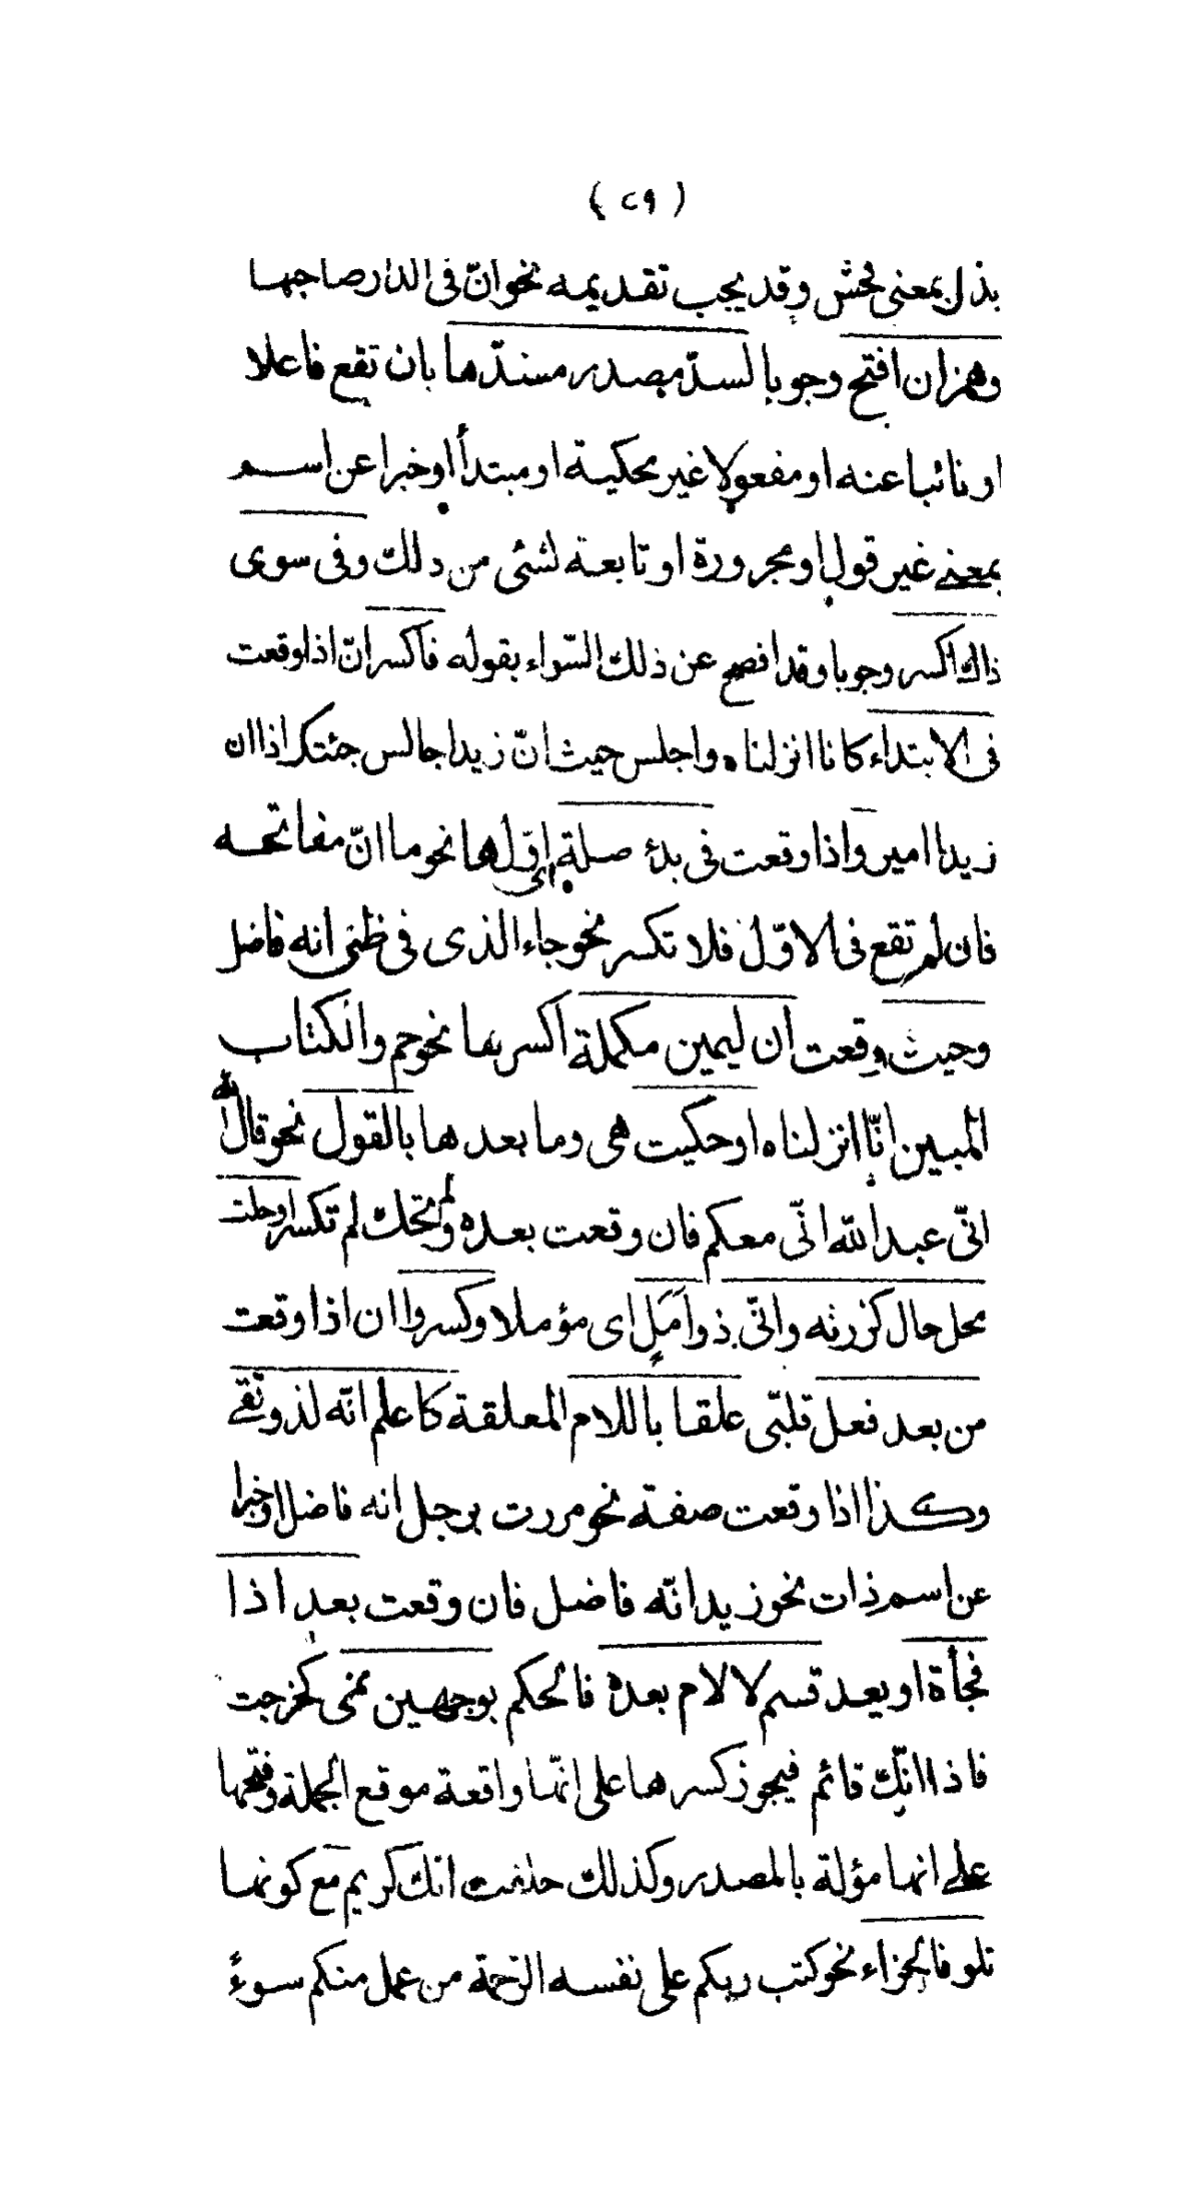 ( ٢٩ )
بذل بمعنى فحش وقد يجب تقديمه نحو انّ فى الدار صاحبها
وهمزان افتح وجوبا لسدّ مصدر مسندّها بان تقع فاعلا
او نائبا عنه او مفعولا غير محكية او مبتدأ او خبرا عن اسم
بمعنى غير قول او مجرورة او تابعة لشئ من ذلك وفى سوى
ذاك اكسر وجوبا وقد افصح عن ذلك السّواء بقوله فاكسر انّ اذا وقعت
فى الابتداء كانا انزلناه واجلس حيث انّ زيدا جالس جئتك اذا ان
زيدا امير واذا وقعت فى بدء صلة اى اوّلها نحو ما انّ مفاتحه
فان لم تقع فى الاوّل فلا تكسر نحو جاء الذى فى ظنى انه فاضل
وحيث وقعت ان ليمين مكملة اكسرها نحو حم والكتاب
المبين انّا انزلناه او حكيت هى وما بعدها بالقول نحو قال الله
انّى عبد الله انّى معكم فان وقعت بعده ولم تحك لم تكسر او حلت
محل حال كزرته وانّى ذو اَمَلٍ اى مؤملا وكسروا ان اذا وقعت
من بعد فعل قلبّى علقا باللام المعلقة كاعلم انّه لذو تقى
وكذا اذا وقعت صفة نحو مررت برجل انه فاضل او خبرا
عن اسم ذات نحو زيد انّه فاضل فان وقعت بعد اذا
فجأة او بعد قسم لا لام بعده فالحكم بوجهين نمى كخرجت
فاذا انّك قائم فيجوز كسرها على انّها واقعة موقع الجملة وفتحها
على انها مؤلة بالمصدر وكذلك حلفت انك كريم مع كونها
تلو فا الجزاء نحو كتب ربكم على نفسه الرّحمة من عمل منكم سوءً